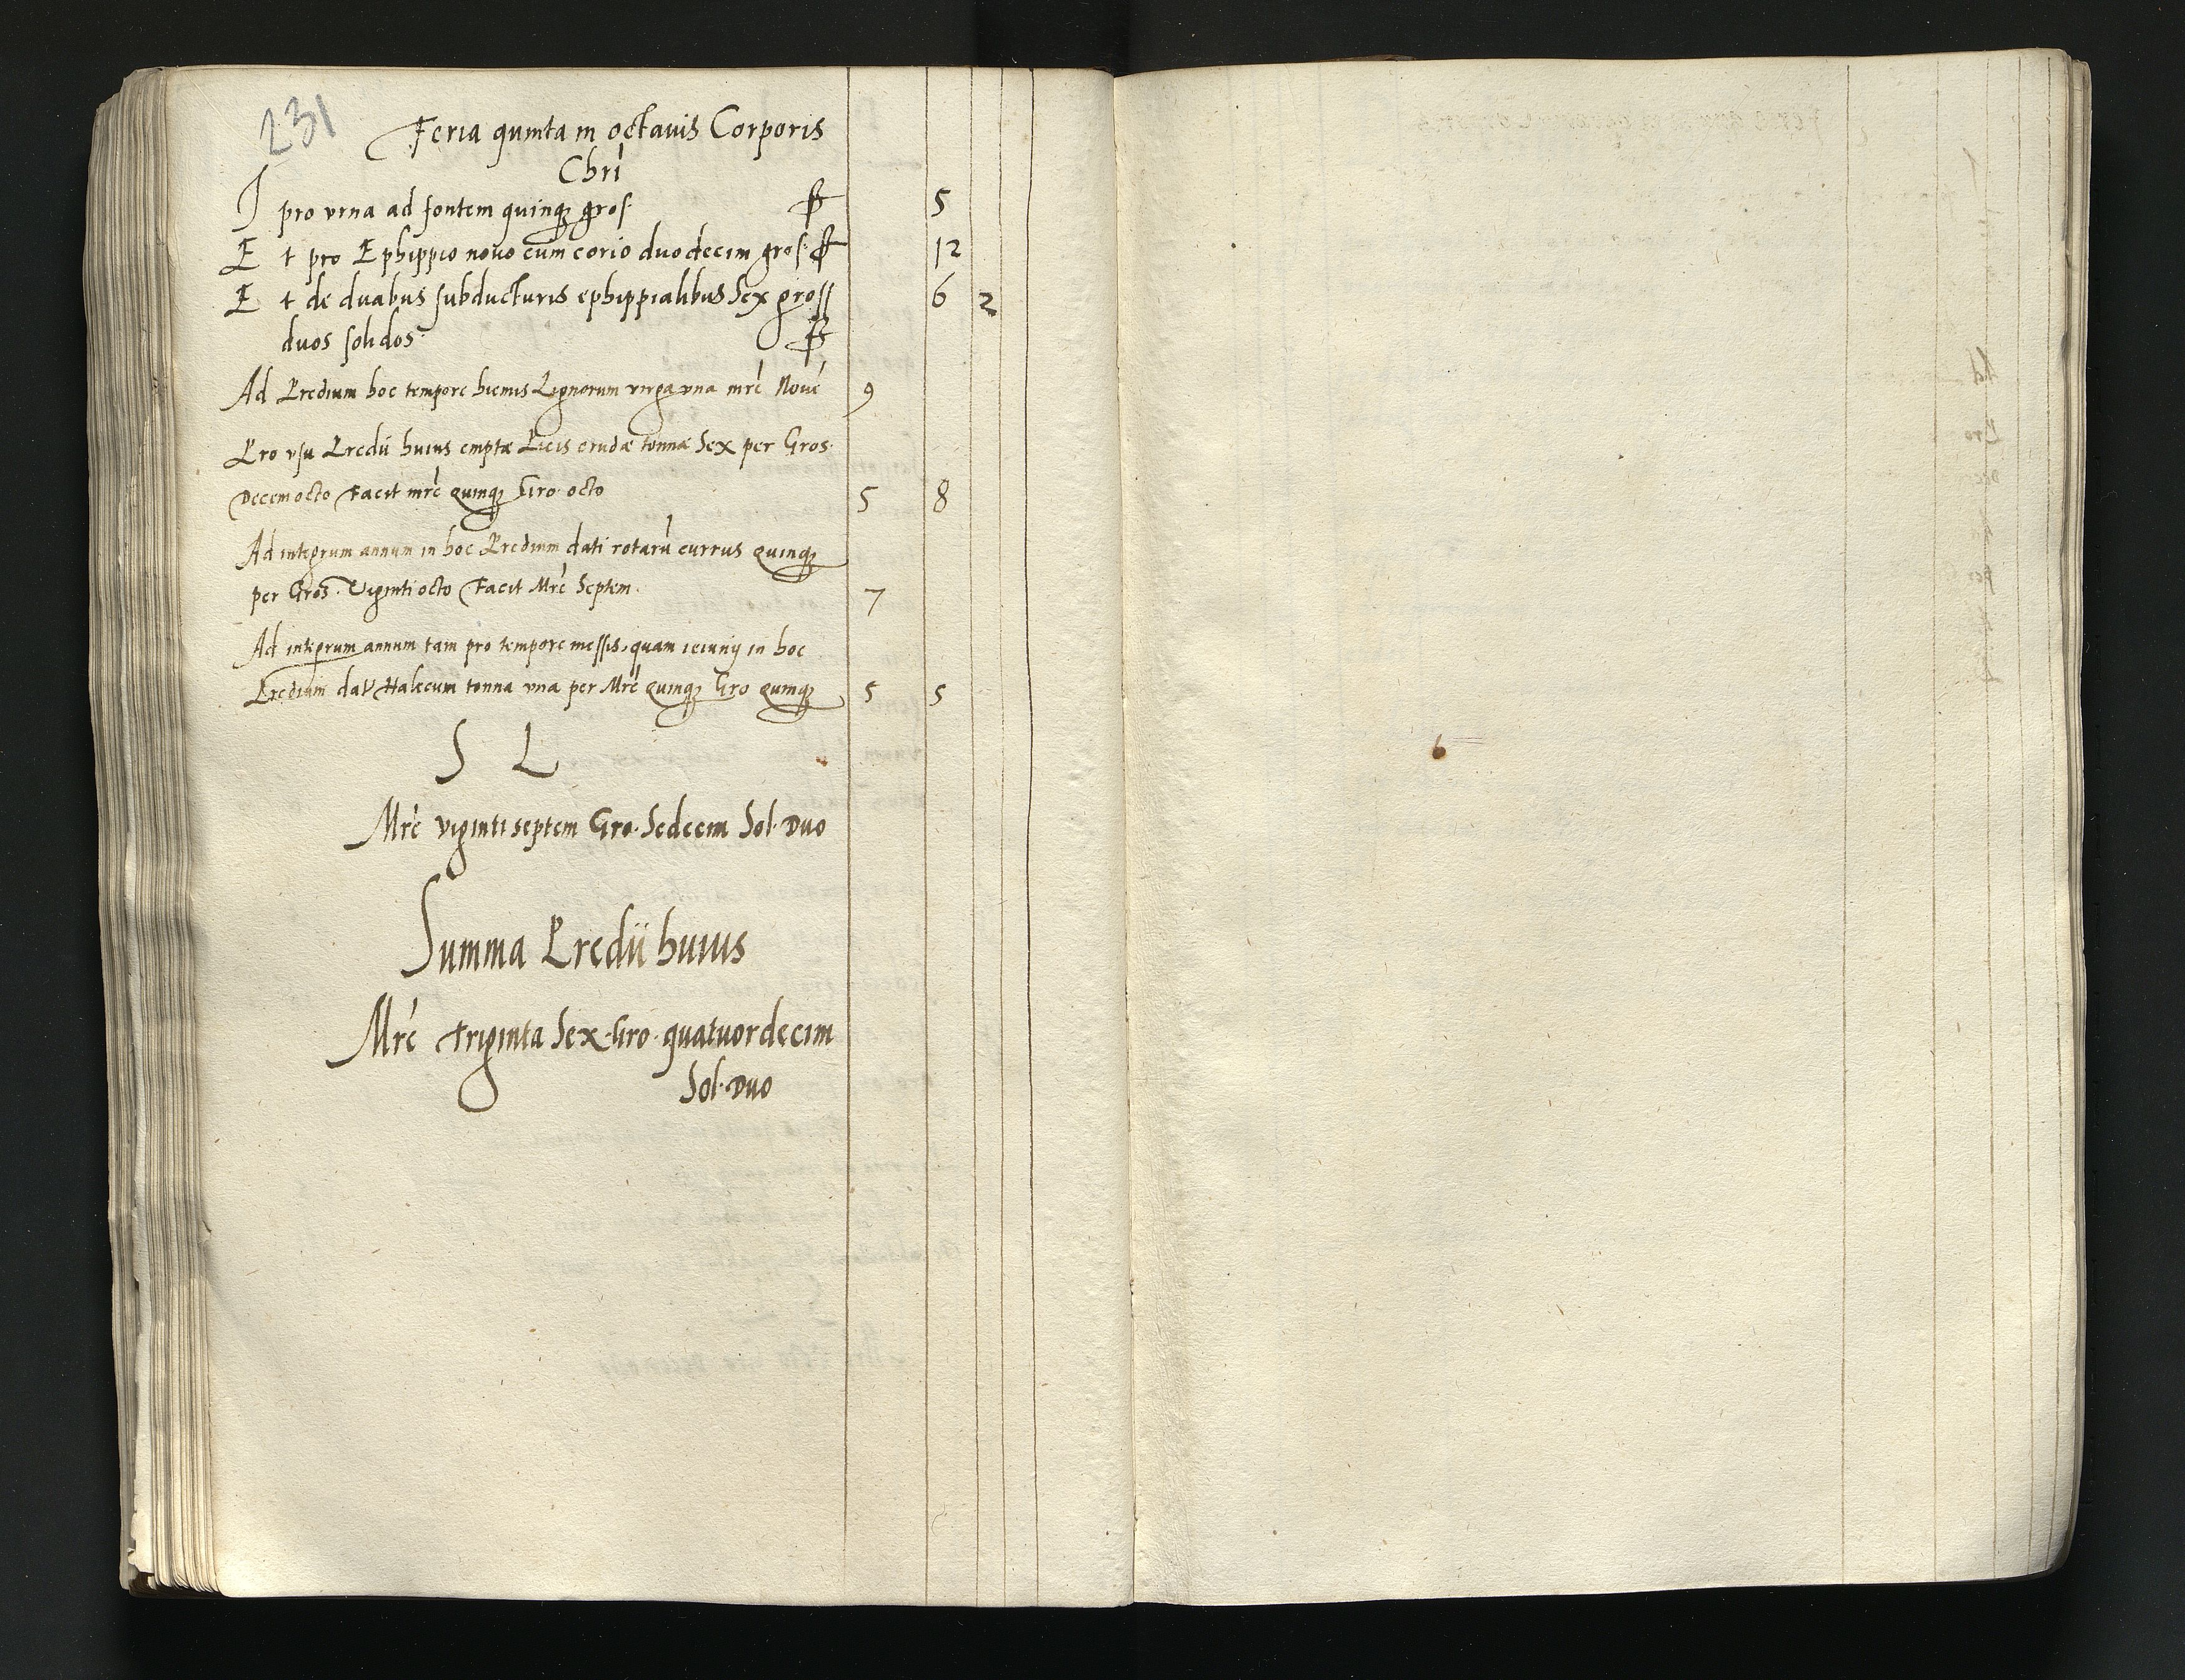 231
Feria quinta in octavis Corporis
Chri
I pro vrna ad fontem quinq3 gros. 5
Et pro Ephippio novo cum corio duodecim gros. 12
Et de duabus subducturis ephippialibus Sex gross 6 2
duos solidos
Ad Predium hoc tempore hiemis Lignorum virga vna mrc Nove 9
Pro vsu Predii huius emptæ Picis crudæ tonnæ Sex per Gros.
Decem octo Facit mrc quinq3 Gro. octo 5 8
Ad integrum annum in hoc Predium dati rotaru currus quinq3
per Gros. Viginti octo Facit Mrc Septem. 7
Ad integrum annum tam pro tempore messis, quam ieiunij in hoc
Predium dat Halecum tonna vna per Mrc quinq3 Gro quinq3 5 5
S L
Mrc viginti septem Gro. Sedecim Sol. Duo
Summa Predii huius
Mrc triginta Sex Gro. quatuordecim
Sol. Duo